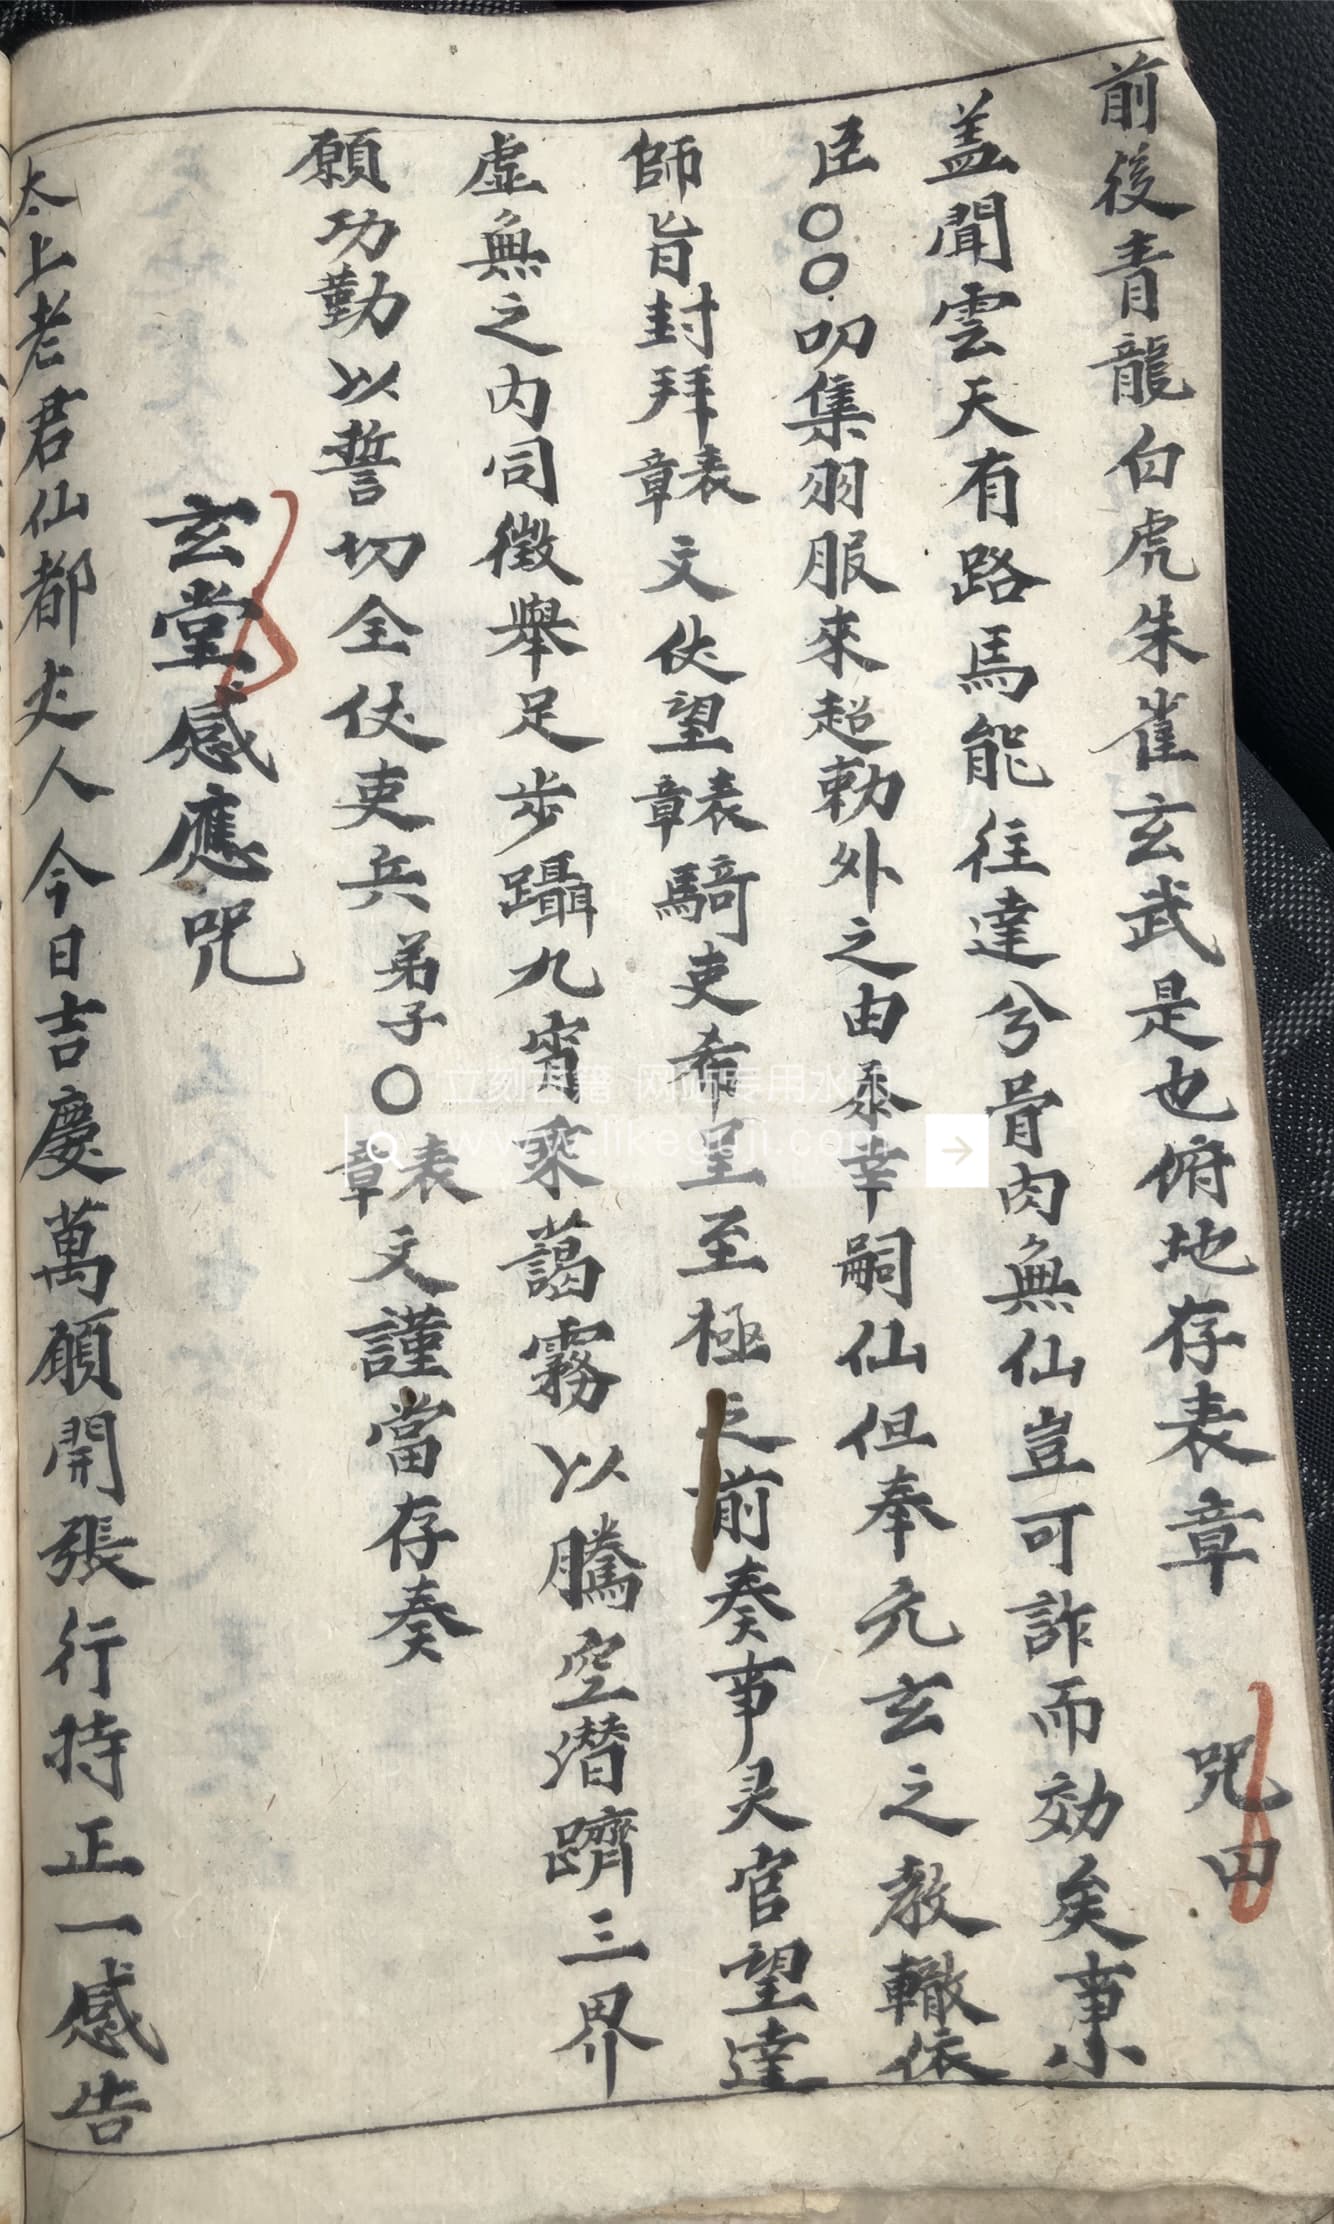 前後青龍白虎朱雀玄武是也俯地存表章 咒曰
盖聞雲天有路焉能往達兮骨肉無仙豈可詐而効矣事小
臣〇〇叨集羽服來超勅外之由忝幸嗣仙但奉元玄之教轍依
師旨封拜章表文伏望章表騎吏希呈至極之前奏事灵官望達
虛無之內同徵舉足步躡九霄乘藹霧以騰空潛躋三界
願功勤以誓切全仗吏兵弟子〇章表文謹當存奏
玄堂感應咒
太上老君仙都丈人今日吉慶萬願開張行持正一感告
立刻古籍 网站专用水印
www.likeguji.com